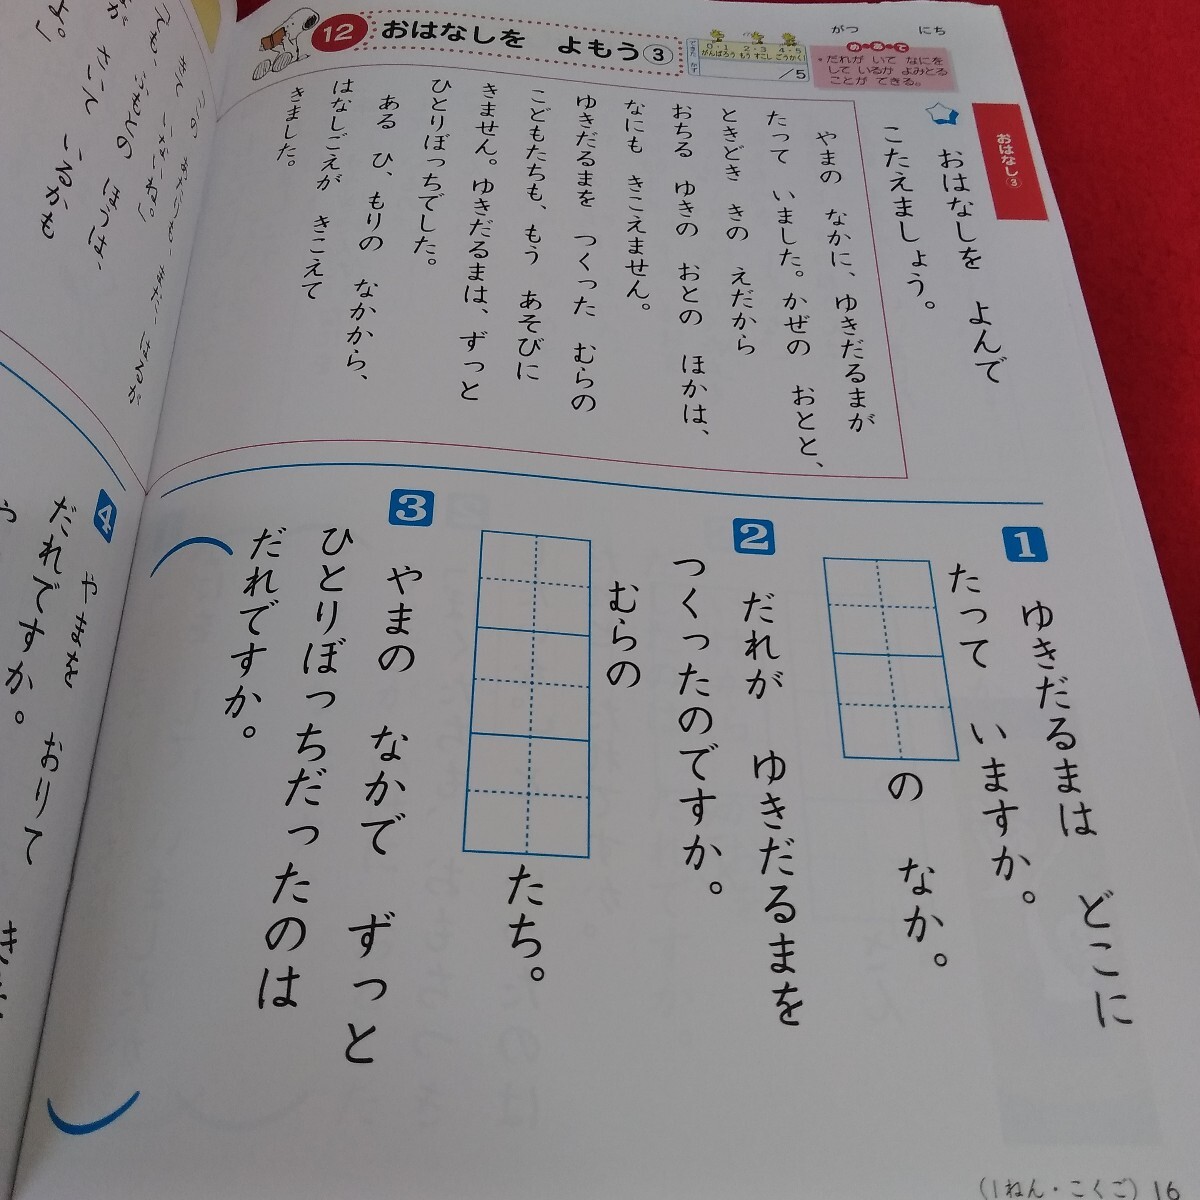 12 おはなしを よもう③
できた かず
0・1 2・3 4・5
がんばろう もう すこし ごうかく!
/5
がつ にち
めあて
・だれが いて なにを
して いるか よみとる
ことが できる。
おはなし③
おはなしを よんで
こたえましょう。
やまの なかに、ゆきだるまが
たって いました。かぜの おとと、
ときどき きの えだから
おちる ゆきの おとの ほかは、
なにも きこえません。
ゆきだるまを つくった むらの
こどもたちも、もう あそびに
きません。ゆきだるまは、ずっと
ひとりぼっちでした。
ある ひ、もりの なかから、
はなしごえが きこえて
きました。
1 ゆきだるまは どこに
たって いますか。
の なか。
2 だれが ゆきだるまを
つくったのですか。
むらの
たち。
3 やまの なかで ずっと
ひとりぼっちだったのは
だれですか。
4 やまを おりて
だれですか。
(1ねん・こくご) 16
さいて いるかも
ほうは、